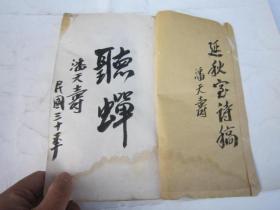 延秋室诗稿
潘天壽
聽蟬
潘天壽
民國三十年